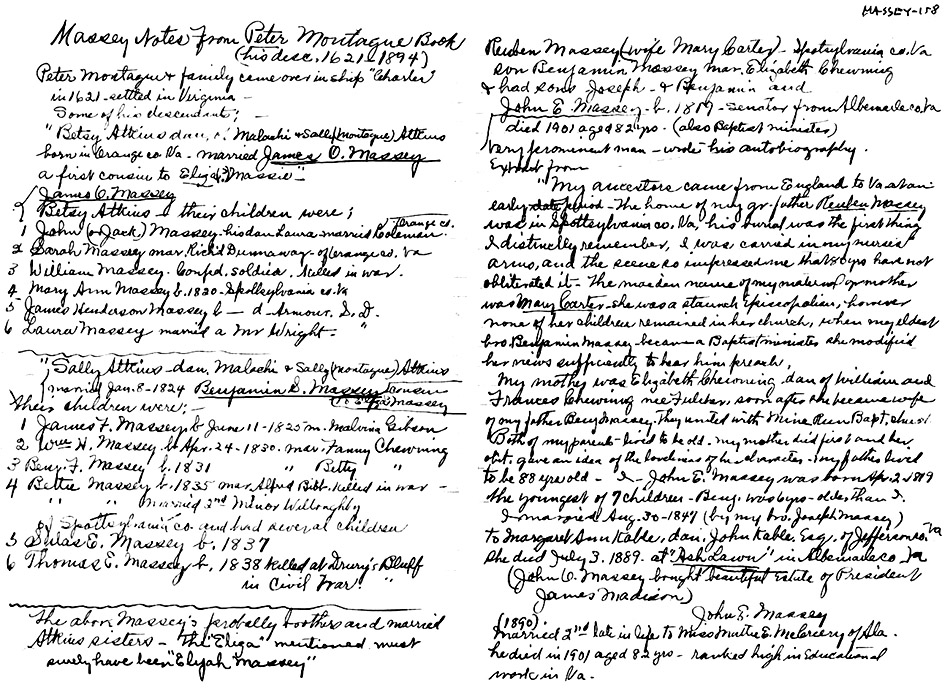 MASSEY-158
Massey Notes from Peter Montague Book
(his desc. 1621-1894)
Peter Montague & family came over in ship "Charles"
in 1621 - settled in Virginia -
Some of his descendants; -
"Betsy Atkins dau. of Malachi & Sally (Montague) Atkins
born in Orange co. Va - married James O. Massey
a first cousin to Eliza Massie" -
James O. Massey
Betsy Atkins - their children were;
1 John (or Jack) Massey - his dau Laura married Coleman Orange co.
2 Sarah Massey mar. Rich'd Dunnaway - of Orange co. Va
3 William Massey - Confed. soldier. Killed in war.
4 Mary Ann Massey b. 1830 - Spottsylvania co. Va
5 James Henderson Massey b — d - Armour. S. D.
6 Laura Massey married a Mr Wright - "
"Sally Atkins - dau. Malachi & Sally (Montague) Atkins
married Jan. 8 - 1824 Benjamin S. Massey cousin
to Massey
Their children were;
1 James F. Massey b June 11 - 1825 m. Malvina Gibson
2 Wm H. Massey b Apr. 24 - 1830. mar. Fanny Chewning
3 Benj. F. Massey b. 1831 " Betty "
4 Bettie Massey b. 1835 mar Alfred Bibb - killed in war -
" " married 2nd Minor Willoughby
of Spottsylvania co and had several children
5 Silas E. Massey b. 1837
6 Thomas E. Massey b. 1838 killed at Drury's Bluff
in Civil War. "
The above Massey's probally boothers and married
Atkins sisters - The "Eliza" mentioned must
surely have been "Elijah Massey"
Reuben Massey (wife Mary Carter) - Spotsylvania co. Va
son Benjamin Massey mar. Elizabeth Chewning
& had sons Joseph - & Benjamin and
John E. Massey - b. 1819 - senator from Albemarle co. Va
died 1901 aged 82 yrs - (also Baptist minister)
Very prominent man - wrote his autobiography.
Extract from
"My ancestors came from England to Va at an
early date period - The home of my gr. father Reuben Massey
was in Spottsylvania co. Va, his burial was the first thing
I distinctly remember, I was carried in my nurses"
arms, and the scene so impressed me that 80 yrs have not
obliterated it - The maiden name of my maternal gr mother
was Mary Carter - she was a staunch Episcopalian, however
none of her children remained in her church, when my eldest
bro Benjamin Massey became a Baptist minister she modified
her views sufficiently to hear him preach,
My mother was Elizabeth Chewning, dau of William and
Frances Chewning nee Fulcher, soon after she became wife
of my father Benj Massey. They united with Mine Run Bapt. church
Both of my parents lived to be old - my mother died first and her
obit. gave an idea of the loveliness of her character - my father lived
to be 88 years old - I - John E. Massey was born Apr. 2 - 1819
the youngest of 7 children - Benj. was 6 yrs - older than I.
I married Aug. 30 - 1847 (by my bro. Joseph Massey)
to Margaret Ann Kable, dau. John Kable, Esq. of Jefferson co. Va
She died July 3. 1889. at "Ash Lawn" in Albemarle co. Va
(John E. Massey bought beautiful estate of President
James Madison)
John E. Massey
(1890).
Married 2nd late in life to Miss Mattie E. McCreery of Ala.
he died in 1901 aged 82 yrs - ranked high in Educational
work in Va -